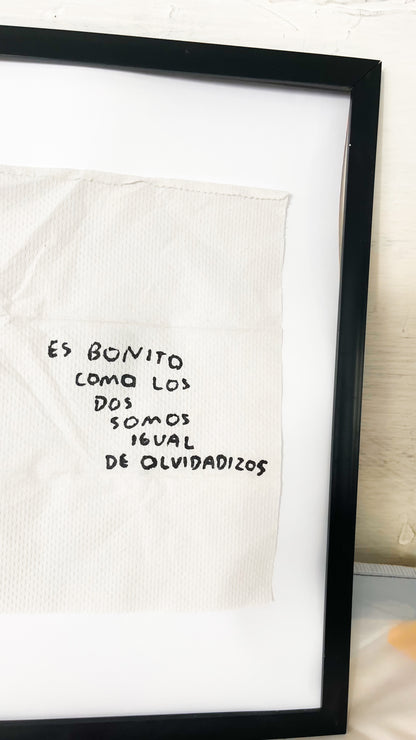 ES BONITO
COMO LOS
DOS
SOMOS
IGUAL
DE OLVIDADIZOS